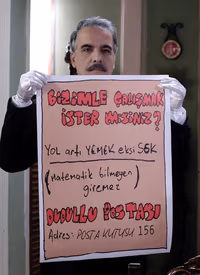 BİZİMLE ÇALIŞMAK
İSTER MİSİNİZ?
YOL artı YEMEK eksi SGK
(matematik bilmeyen
giremez)
DUDULLU POSTASI
Adres: POSTA KUTUSU 156